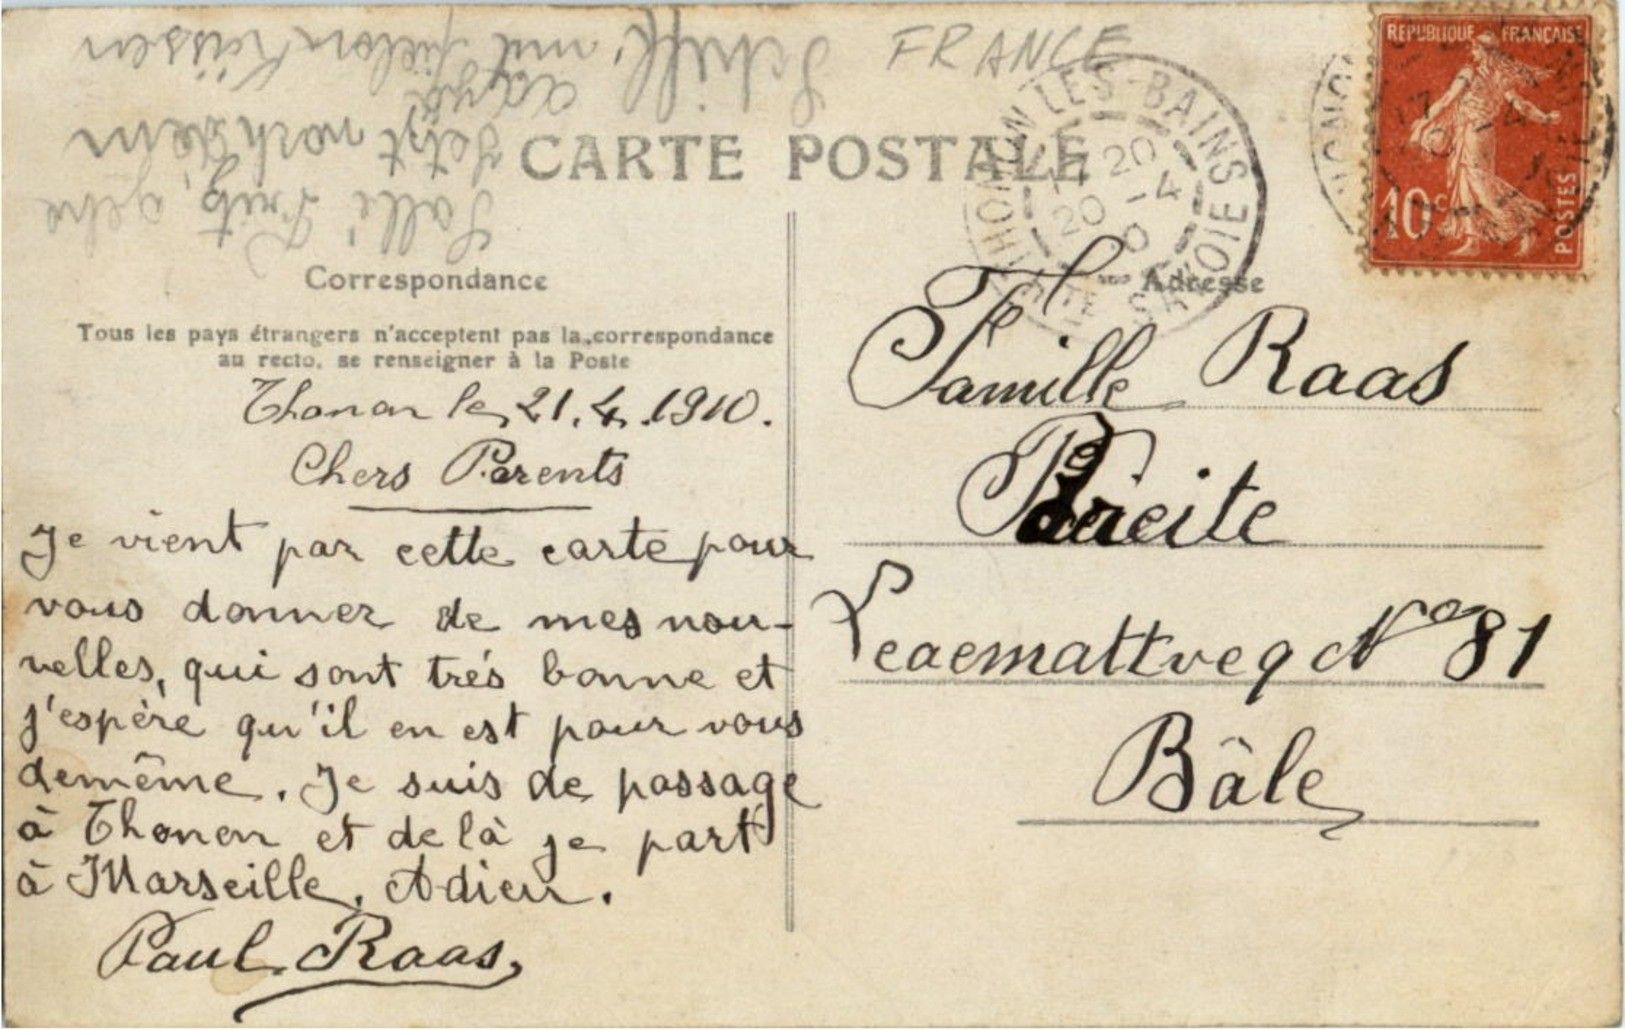 FRANCE
CARTE POSTALE
REPUBLIQUE FRANÇAISE
10c
POSTES
THONON LES-BAINS
20 -4
SAVOIE
Correspondance
Adresse
Tous les pays étrangers n'acceptent pas la correspondance
au recto, se renseigner à la Poste
Thonon le, 21.4.1910.
Chers Parents
Je vient par cette carte pour
vous donner de mes nou-
velles, qui sont très bonne et
j'espère qu'il en est pour vous
demême. Je suis de passage
à Thonon et de là je part
à Marseille. Adieu.
Paul Raas,
Famille Raas
Breite
No 81
Bâle
Salli Fritz, gehe
jetzt nach dem
Schiff, mit vielen Küssen